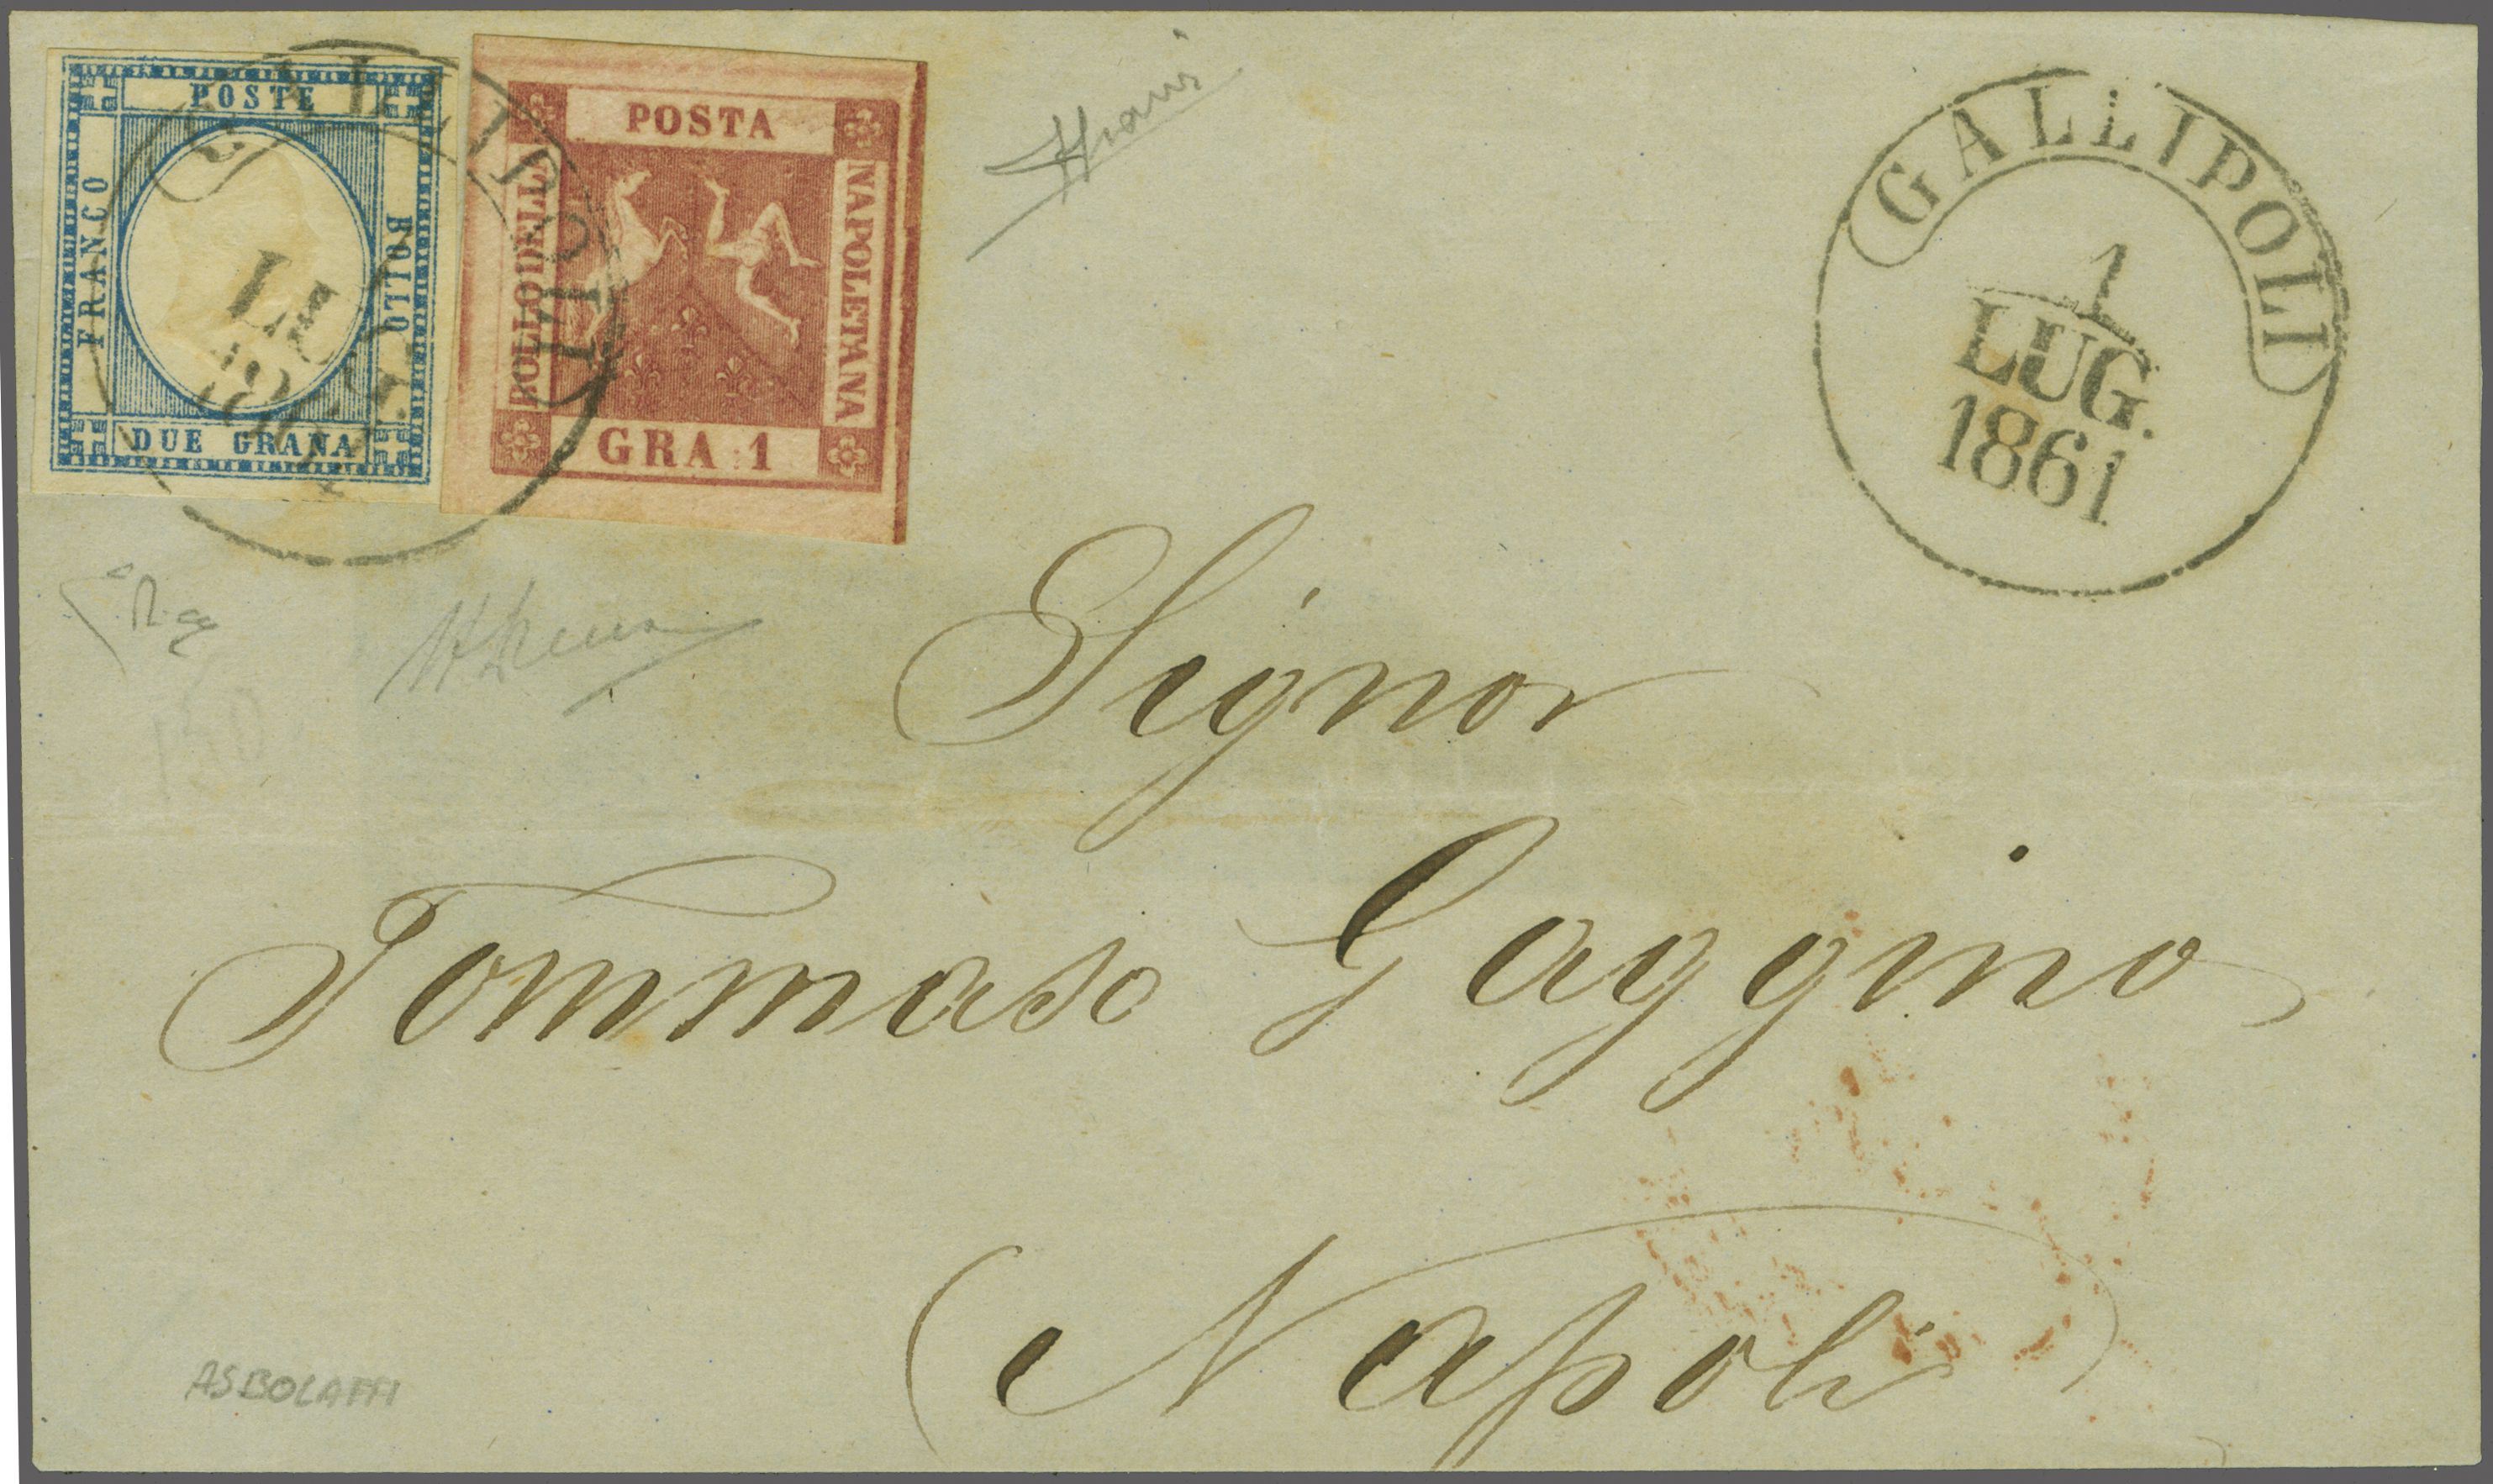 POSTE
FRANCO
BOLLO
DUE GRANA
POSTA
BOLLO DELLA
NAPOLETANA
GRA 1
GALLIPOLI
LUG.
1861
GALLIPOLI
1
LUG.
1861
Signor
Tommaso Gaggino
Napoli
ASBOLAFFI